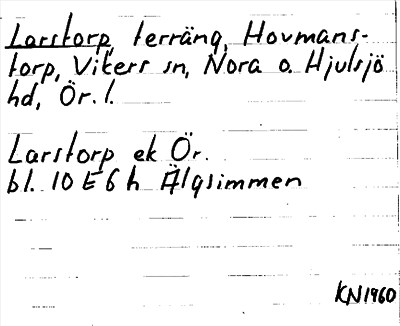 Larstorp, terräng, Hovmans-
torp, Vikers sn, Nora o. Hjulsjö
hd, Ör. l.
Larstorp ek Ör.
bl. 10 E 6 h Älgsimmen
KN1960